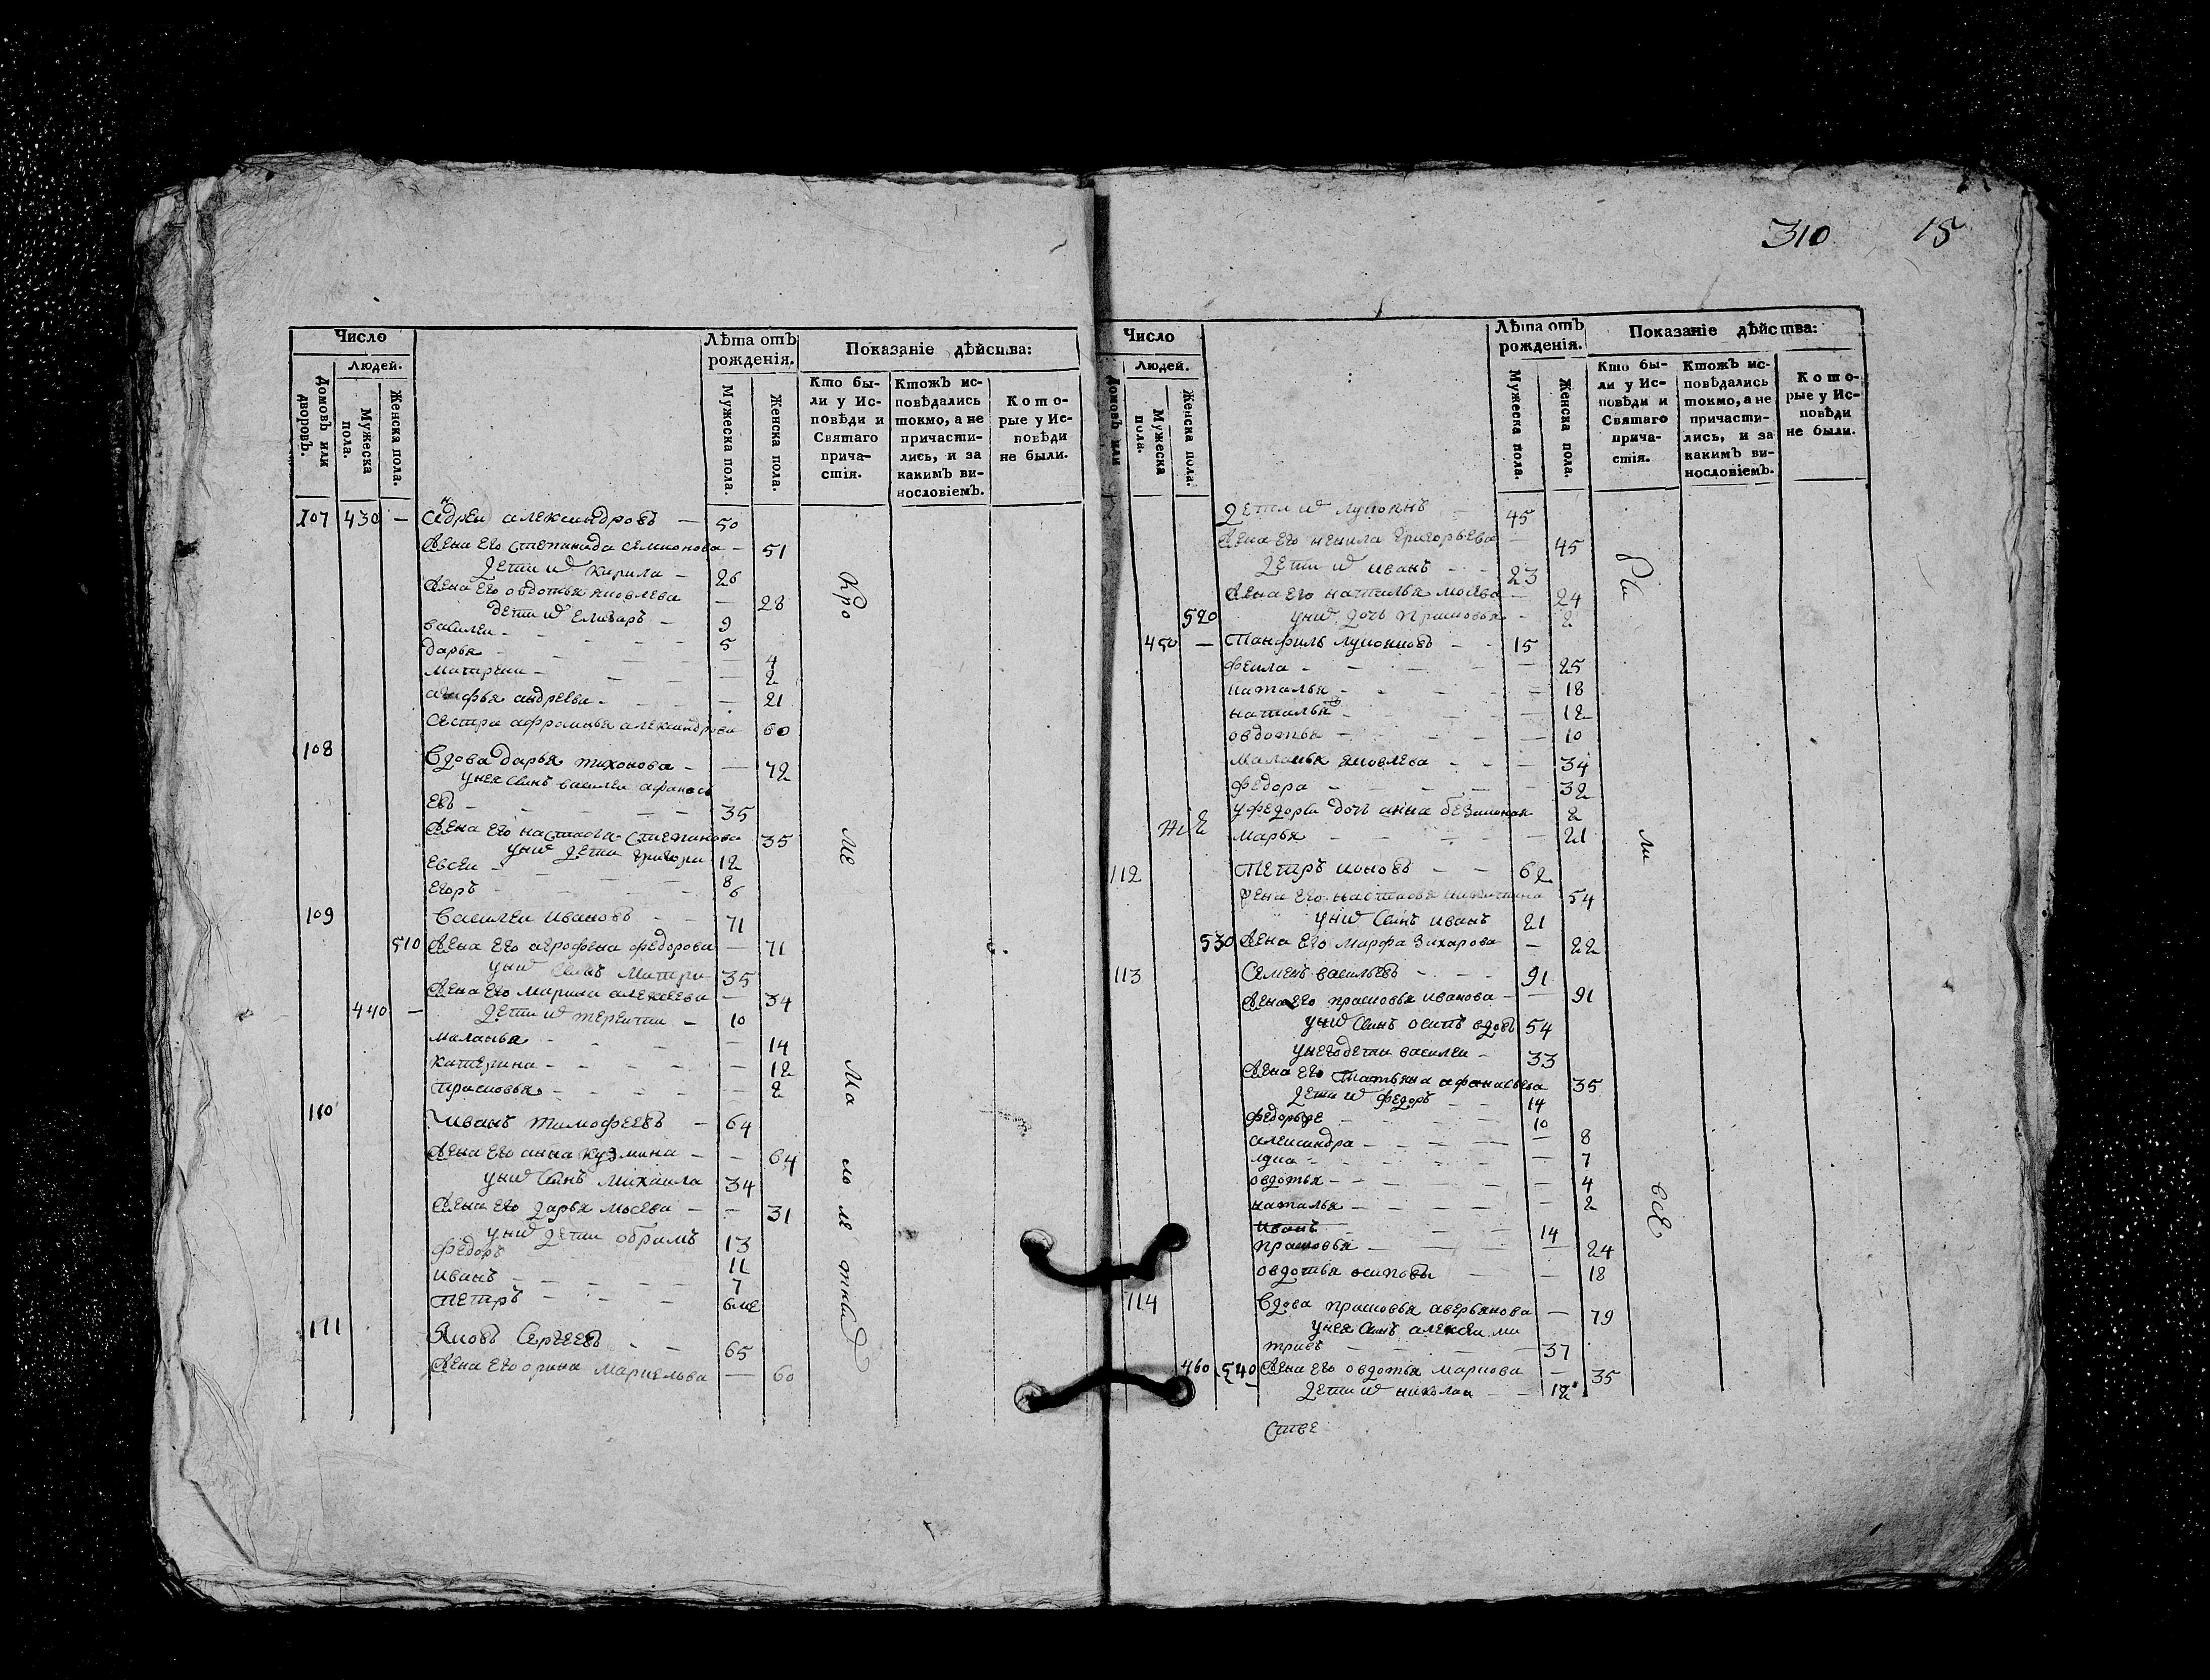 310 15
Число
Людей.
Домовъ или дворовъ.
Мужеска пола.
Женска пола.
Лѣта отъ рожденія.
Мужеска пола.
Женска пола.
Показаніе дѣйства:
Кто бы-
ли у Ис-
повѣди и
Святаго
прича-
стія.
Ктожъ ис-
повѣдались
токмо, а не
причасти-
лись, и за
какимъ ви-
нословіемъ.
Кото-
рые у Ис-
повѣди
не были.
107 430 — Андреи александровъ — 50
Жена его степанида семионова — 51
Дети их кирила — 26
Жена его овдотья яковлева — 28
дети их Елизаръ — 9
василеи — 5
дарья — 4
матрена — 2
агафья андреева — 21
сестра афросинья александрова 60
108
Вдова дарья тихонова — 72
унея сынъ василеи афанась
евъ — 35
Жена его настасья степанова 35
уних дети григори 12
евсеи — 8
егоръ 6
109 Василеи ивановъ — 71
510 Жена его агрофена федорова — 71
уних сынъ 35
Жена его марина алексеева — 34
440 — Дети их терентии — 10
маланья — 14
катерина — 12
прасковья — 2
110 иванъ тимофеевъ — 64
Жена его анна кузмина — 64
уних сынъ михаила 34
Жена его дарья мосеева — 31
уних дети обрамъ 13
федоръ 11
иванъ — 7
петръ — 6 ме
111 Яковъ Сергеевъ — 65
Жена его орина маркельва — 60
Кро
ме
ма
ло
ле
тних
Число
Людей.
Домовъ или
Мужеска пола.
Женска пола.
Лѣта отъ
рожденія.
Мужеска пола.
Женска пола.
Показаніе дѣйства:
Кто бы-
ли у Ис-
повѣди и
Святаго
прича-
стія.
Ктожъ ис-
повѣдались
токмо, а не
причасти-
лись, и за
какимъ ви-
нословіемъ.
Кото-
рые у Ис-
повѣди
не были.
Дети их лукиянъ 45
Жена его ненила григорьева — 45
Дети их иванъ — 23
Жена его наталья мосева — 24
520 уних дочь прасковья — 2
450 — Панфилъ лукияновъ — 15
фекла — 25
наталья — 18
наталья — 12
овдотья — 10
маланья яковлева — 34
федора — 32
уфедоры дочь анна безаконая 2
марья — 21
112 Петръ ионовъ — 62
Жена его настасья 54
уних сынъ иванъ 21
530 Жена его марфа захарова — 22
113 Семенъ васильевъ — 91
Жена его прасковья иванова — 91
уних сынъ осипъ вдовъ 54
унего дети василеи — 33
Жена его татьяна афанасьева 35
Дети их федоръ — 14
федоръ же — 10
александра — 8
7
овдотья — 4
наталья — 2
иванъ 14
прасковья — 24
овдотья осипова — 18
114 Вдова прасковья аверьянова — 79
унея сынъ алексеи ми
триевъ — 37
460 540 Жена его овдотья маркова — 35
Дети их николаи — 12
бы
ли
все